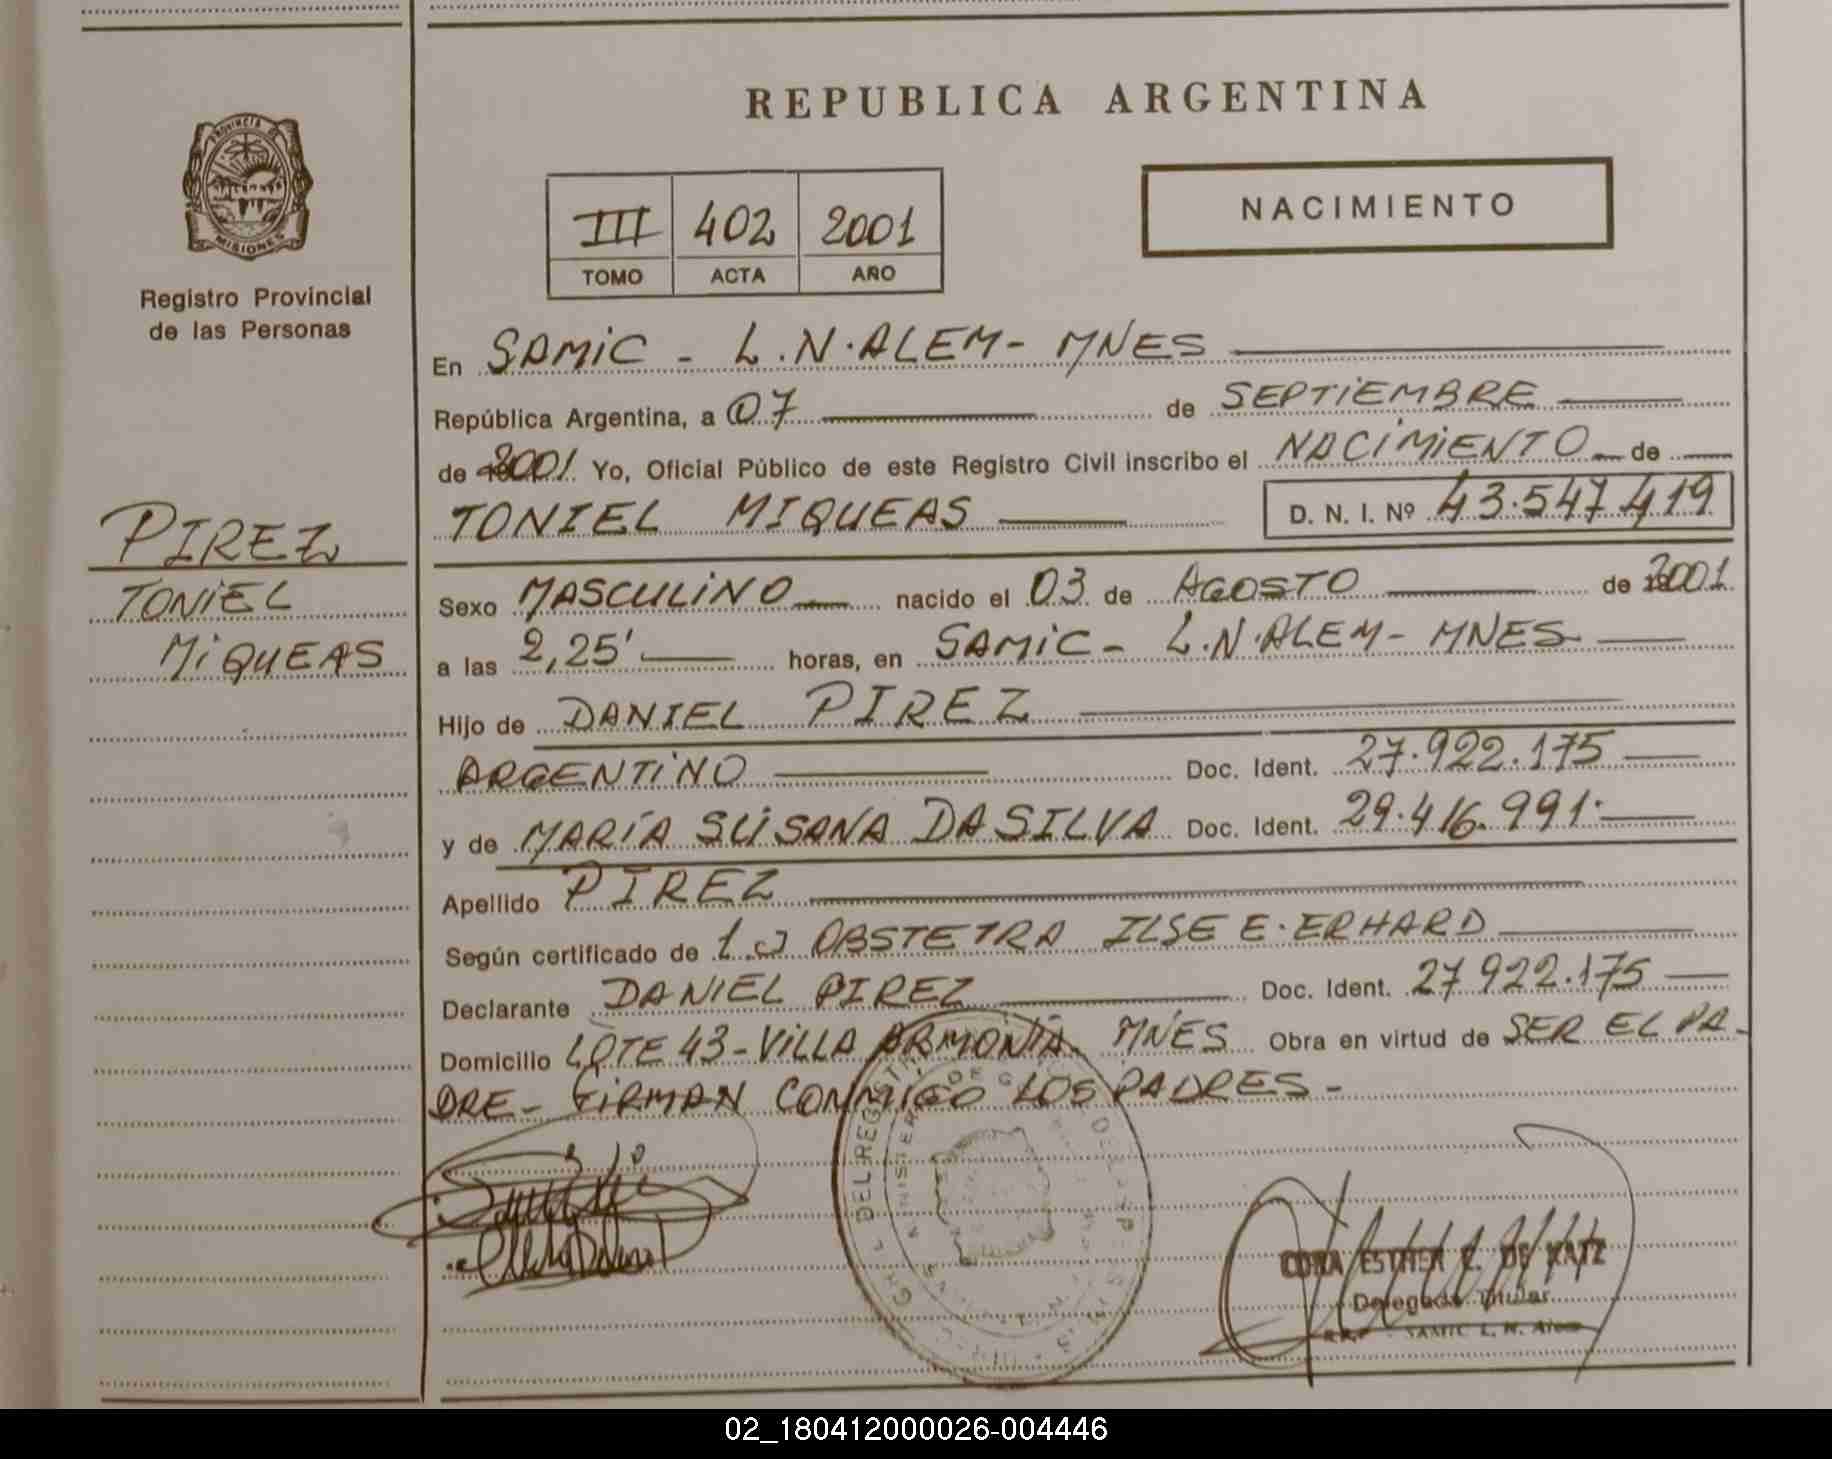 REPUBLICA ARGENTINA
PROVINCIA DE
MISIONES
Registro Provincial
de las Personas
III 402 2001
TOMO ACTA AÑO
NACIMIENTO
En SAMIC - L.N.ALEM - MNES
República Argentina, a 07 de SEPTIEMBRE
de 2001. Yo, Oficial Público de este Registro Civil inscribo el NACIMIENTO de
TONIEL MIQUEAS D. N. I. Nº 43.547.419
PIREZ
TONIEL
MIQUEAS
Sexo MASCULINO nacido el 03 de AGOSTO de 2001
a las 2,25' horas, en SAMIC - L.N.ALEM - MNES
Hijo de DANIEL PIREZ
ARGENTINO Doc. Ident. 27.922.175
y de MARÍA SUSANA DA SILVA Doc. Ident. 29.416.991.
Apellido PIREZ
Según certificado de OBSTETRA ILSE E. ERHARD
Declarante DANIEL PIREZ Doc. Ident. 27 922.175
Domicilio LOTE 43 - VILLA ARMONÍA. MNES Obra en virtud de SER EL PA-
DRE - FIRMAN CONMIGO LOS PADRES -
DEL REGISTRO
ESTHER E. DE KATZ
Delegada Titular
SAMIC L. N. Alem
02_180412000026-004446